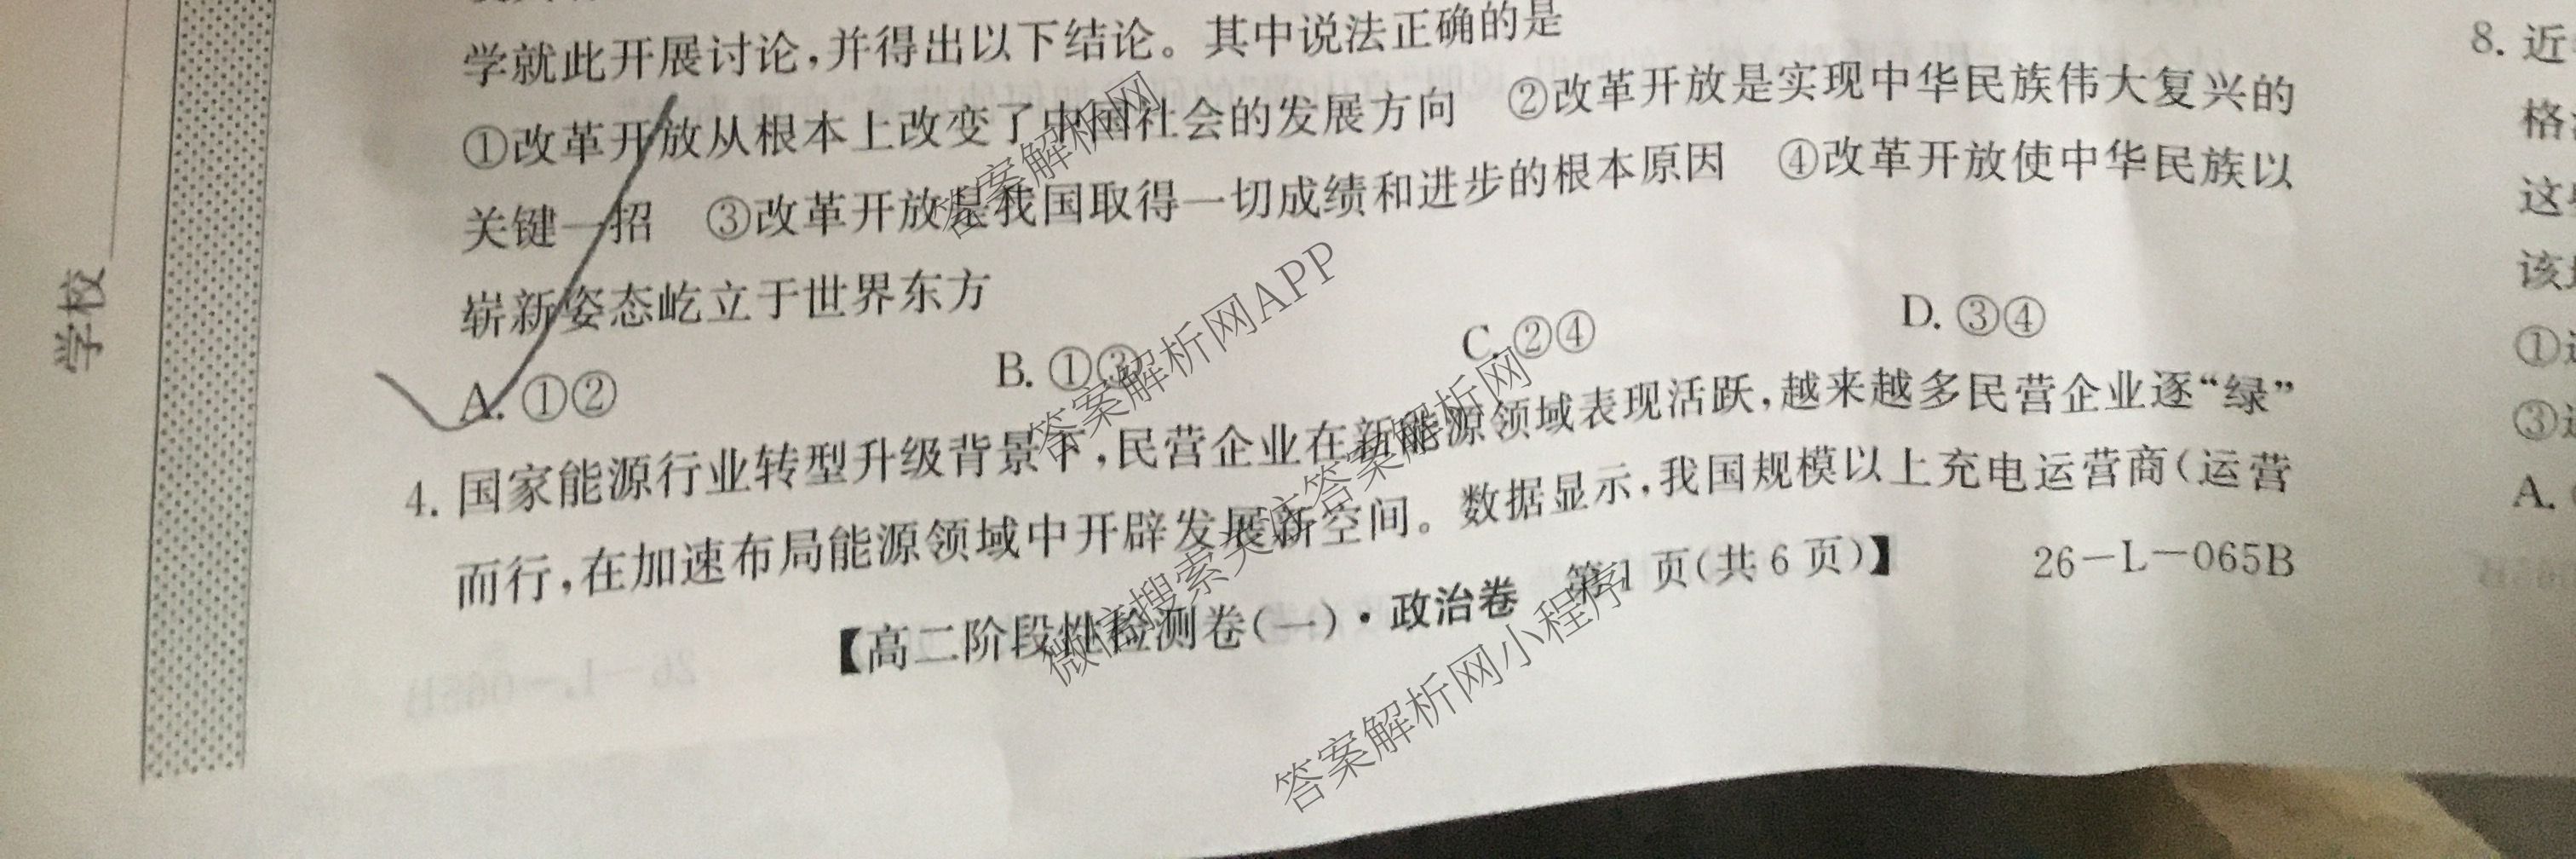 学就此开展讨论,并得出以下结论。其中说法正确的是
①改革开放从根本上改变了中国社会的发展方向 ②改革开放是实现中华民族伟大复兴的
关键一招 ③改革开放是我国取得一切成绩和进步的根本原因 ④改革开放使中华民族以
崭新姿态屹立于世界东方
A. ①② B. ①③ C. ②④ D. ③④
4. 国家能源行业转型升级背景下,民营企业在新能源领域表现活跃,越来越多民营企业逐“绿”
而行,在加速布局能源领域中开辟发展新空间。数据显示,我国规模以上充电运营商(运营
【高二阶段性检测卷(一)·政治卷 第1页(共6页)】 26-L-065B
学校
8. 近
格
这
该
①
③
A.
答案解析网
答案解析网APP
微信搜索关注答案解析网
答案解析网小程序